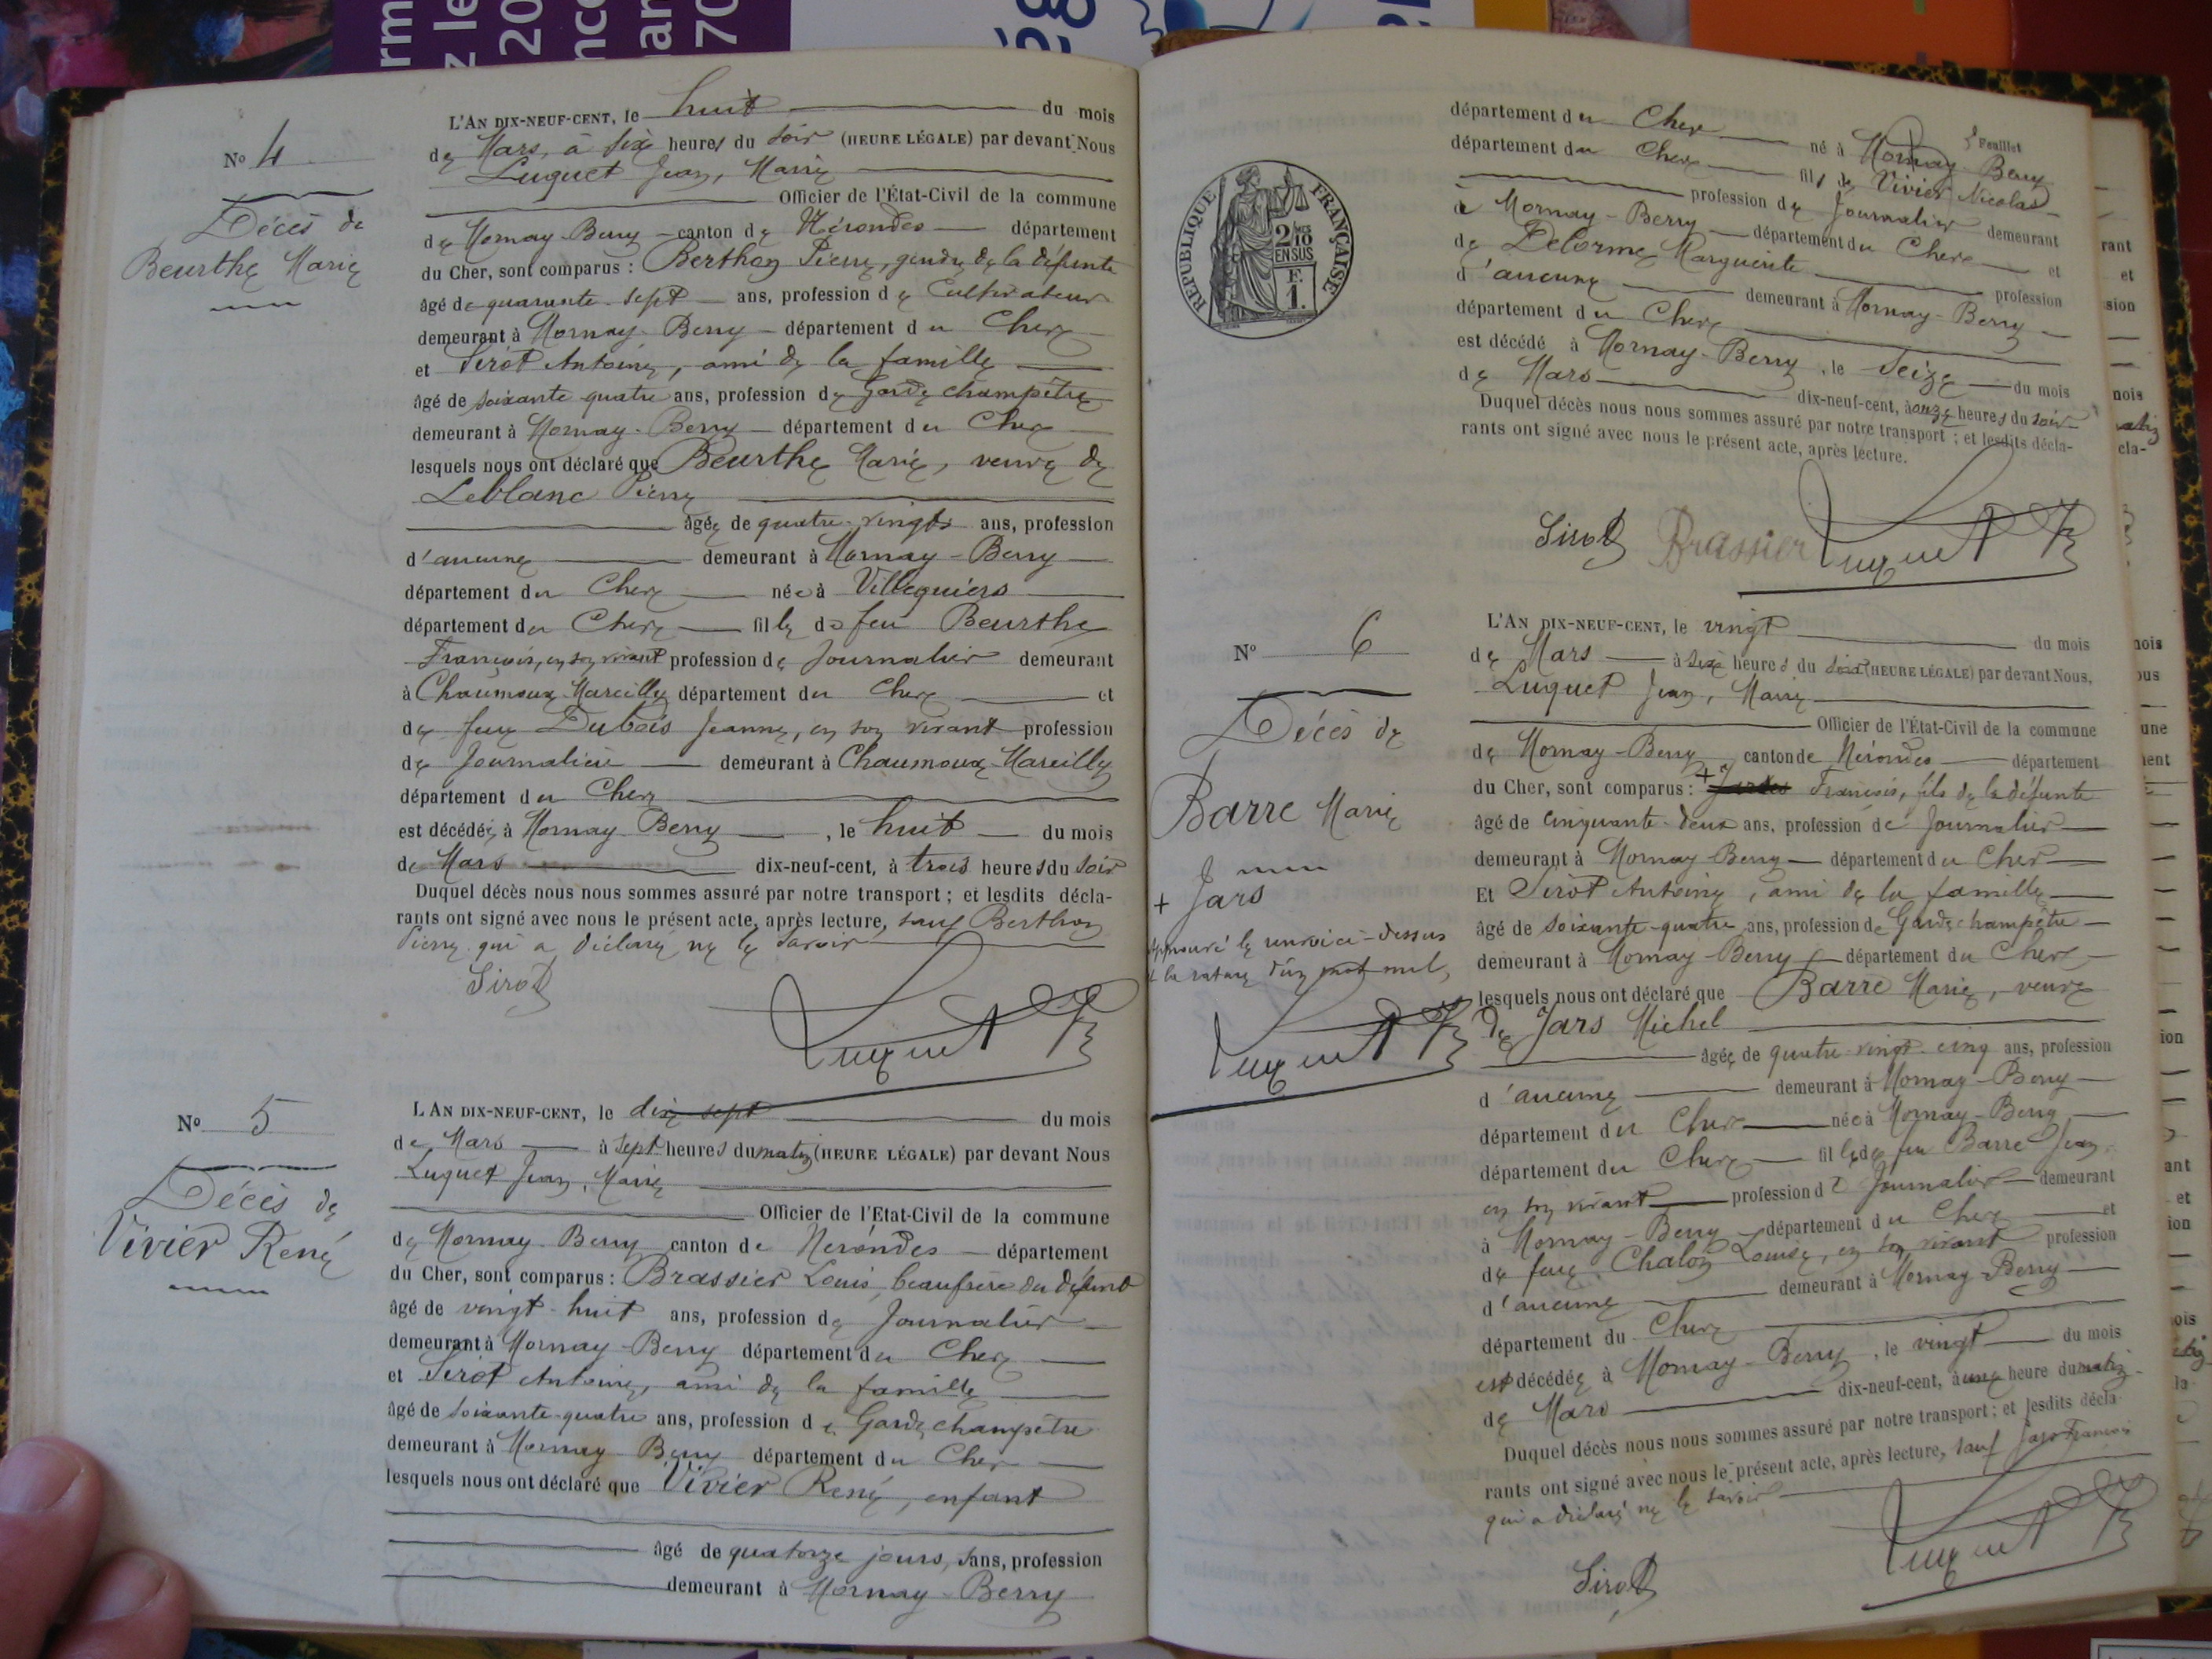 N° 4
Décès de
Beurthe Marie
L'AN DIX-NEUF-CENT, le huit du mois
de Mars, à six heures du soir (HEURE LÉGALE) par devant Nous
Luquet Jean, Maire
Officier de l'État-Civil de la commune
de Mornay-Berry canton de Nérondes département
du Cher, sont comparus : Berthon Pierre, gendre de la défunte
âgé de quarante-sept ans, profession de Cultivateur
demeurant à Mornay-Berry département du Cher
et Sirot Antoine, ami de la famille
âgé de soixante-quatre ans, profession de Garde champêtre
demeurant à Mornay-Berry département du Cher
lesquels nous ont déclaré que Beurthe Marie, veuve de
Leblanc Pierre
âgée de quatre-vingts ans, profession
d'aucune demeurant à Mornay-Berry
département du Cher née à Villequiers
département du Cher fille de feu Beurthe
François, en son vivant profession de Journalier demeurant
à Chaumoux-Marcilly département du Cher et
de feue Dubois Jeanne, en son vivant profession
de Journalière demeurant à Chaumoux-Marcilly
département du Cher
est décédée à Mornay-Berry, le huit du mois
de Mars dix-neuf-cent, à trois heures du soir
Duquel décès nous nous sommes assuré par notre transport ; et lesdits décla-
rants ont signé avec nous le présent acte, après lecture, sauf Berthon
Pierre qui a déclaré ne le savoir
Sirot
Luquet
N° 5
Décès de
Vivier René
L'AN DIX-NEUF-CENT, le dix-sept du mois
de Mars à sept heures du matin (HEURE LÉGALE) par devant Nous
Luquet Jean, Maire
Officier de l'Etat-Civil de la commune
de Mornay-Berry canton de Nérondes département
du Cher, sont comparus : Brassier Louis, beaufrère du défunt
âgé de vingt-huit ans, profession de Journalier
demeurant à Mornay-Berry département du Cher
et Sirot Antoine, ami de la famille
âgé de soixante-quatre ans, profession de Garde champêtre
demeurant à Mornay-Berry département du Cher
lesquels nous ont déclaré que Vivier René, enfant
âgé de quatorze jours, sans, profession
demeurant à Mornay-Berry
Feuillet
département du Cher né à Mornay-Berry
département du Cher fils de Vivier Nicolas
profession de Journalier demeurant
à Mornay-Berry département du Cher et
de Delorme Marguerite profession
d'aucune demeurant à Mornay-Berry
département du Cher
est décédé à Mornay-Berry, le seize du mois
de Mars dix-neuf-cent, à onze heures du soir
Duquel décès nous nous sommes assuré par notre transport ; et lesdits décla-
rants ont signé avec nous le présent acte, après lecture.
REPUBLIQUE FRANÇAISE
2/10
EN SUS
F.
1.
Sirot Brassier Luquet
N° 6
Décès de
Barre Marie
+ Jars
Approuvé le renvoi ci-dessus
et la rature d'un mot nul,
Luquet
L'AN DIX-NEUF-CENT, le vingt du mois
de Mars à six heures du soir (HEURE LÉGALE) par devant Nous,
Luquet Jean, Maire
Officier de l'État-Civil de la commune
de Mornay-Berry canton de Nérondes département
du Cher, sont comparus : + François, fils de la défunte
âgé de cinquante-deux ans, profession de Journalier
demeurant à Mornay-Berry département du Cher
Et Sirot Antoine, ami de la famille
âgé de soixante-quatre ans, profession de Garde champêtre
demeurant à Mornay-Berry département du Cher
lesquels nous ont déclaré que Barre Marie, veuve
de Jars Michel
âgée de quatre-vingt-cinq ans, profession
d'aucune demeurant à Mornay-Berry
département du Cher née à Mornay-Berry
département du Cher fille de feu Barre Jean
en son vivant profession de Journalier demeurant
à Mornay-Berry département du Cher et
de feue Chalon Louise, en son vivant profession
d'aucune demeurant à Mornay-Berry
département du Cher
est décédée à Mornay-Berry, le vingt du mois
de Mars dix-neuf-cent, à une heure du matin
Duquel décès nous nous sommes assuré par notre transport ; et lesdits décla-
rants ont signé avec nous le présent acte, après lecture, sauf Jars François
qui a déclaré ne le savoir
Sirot
Luquet